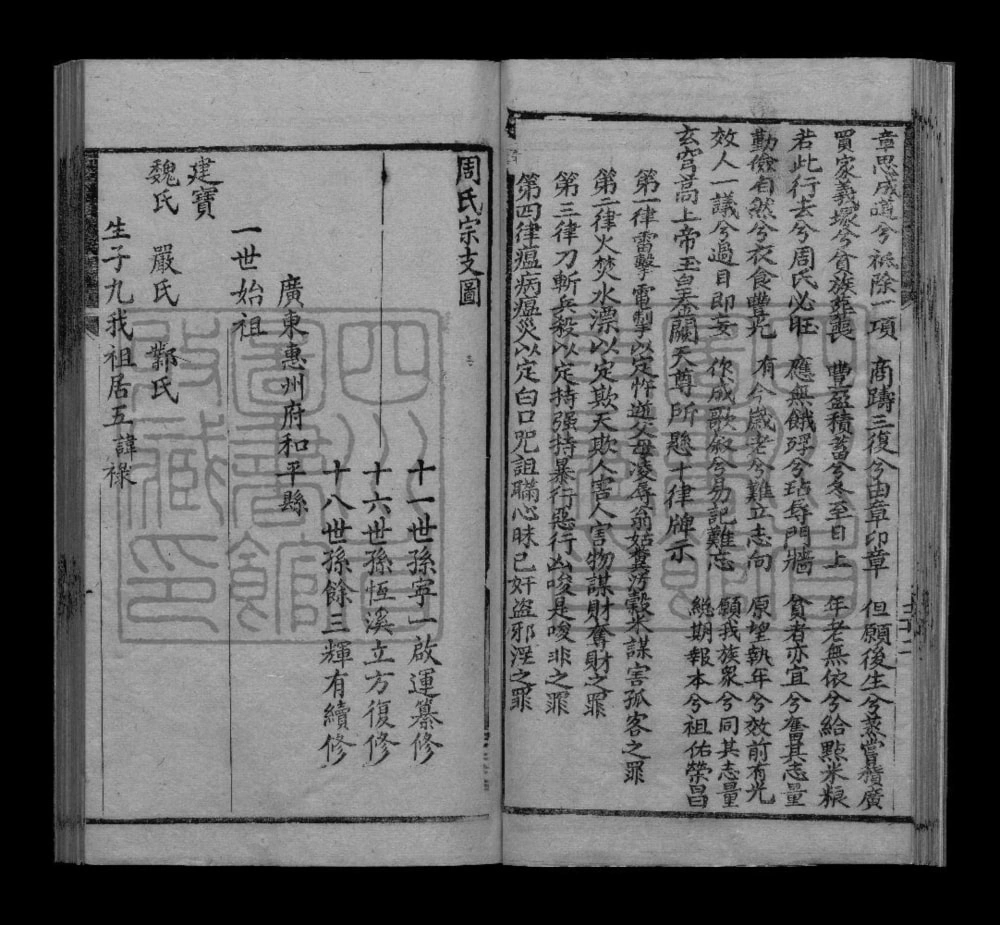 章思成噵兮祗除一項 商躊三復兮由章印章 但願後生兮蒸嘗積廣
買家義塚兮貧族葬喪 豐盈積蓄兮冬至日上 年老無依兮給點米粮
若此行去兮周氏必旺 應無餓殍兮玷辱門牆 貧者亦宜兮奮其志量
勤儉自然兮衣食豐光 有今歲老兮難立志向 原望執年兮效前有光
效人一議兮過目即妄 作成歌叙兮易記難忘 願我族眾兮同其志量
總期報本兮祖佑榮昌
玄穹高上帝玉皇金闕天尊所懸十律牌示
第一律雷擊電掣以定忤逆父母凌辱翁姑糞污穀米謀害孤客之罪
第二律火焚水漂以定欺天欺人害人害物謀財奪財之罪
第三律刀斬兵殺以定持强持暴行惡行凶唆是唆非之罪
第四律瘟病瘟災以定白口咒詛瞞心昧己奸盗邪淫之罪
周氏宗支圖
十一世孫寧一啟運纂修
十六世孫恆溪立方復修
十八世孫餘三輝有續修
廣東惠州府和平縣
一世始祖
建寶
魏氏 嚴氏 鄴氏
生子九我祖居五諱祿
四川省圖書館收藏印